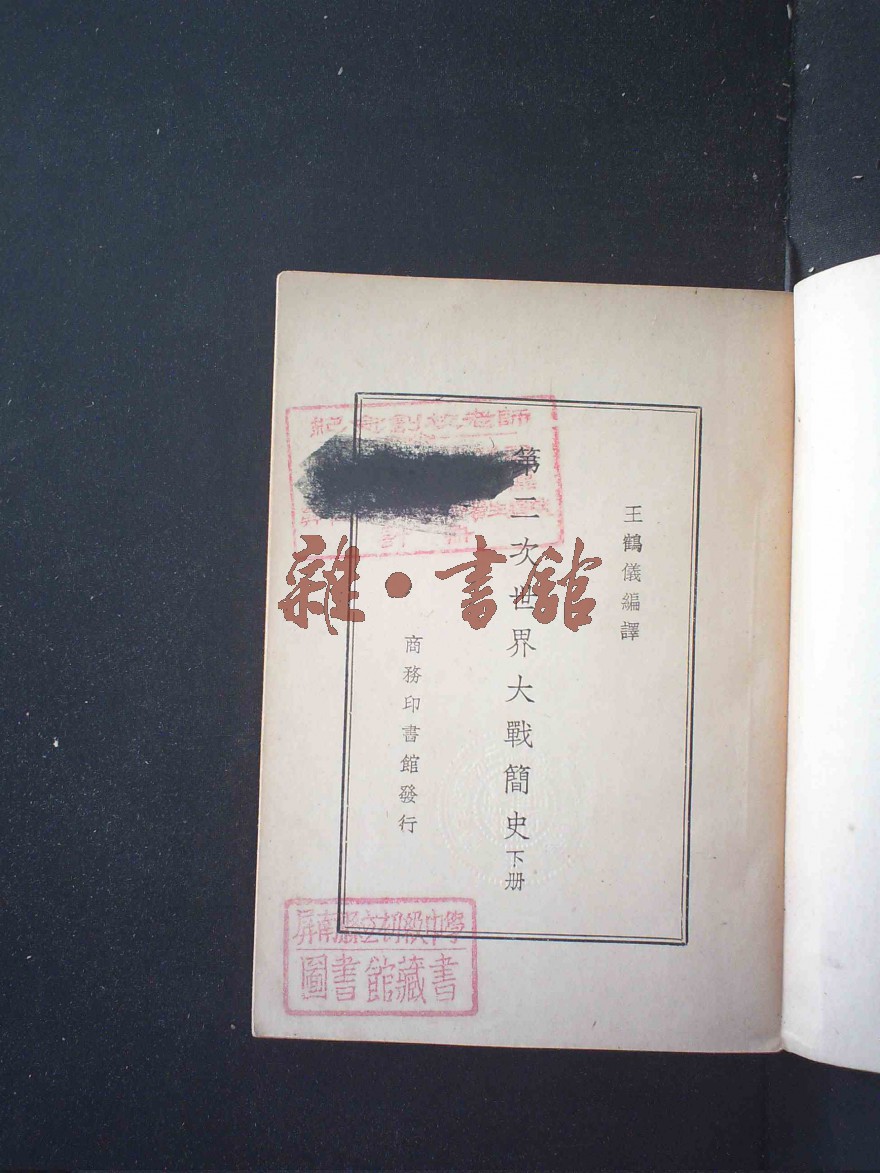 王鶴儀編譯
第二次世界大戰簡史下册
商務印書館發行
雜·書舘
屏南縣立初級中學
圖書館藏書